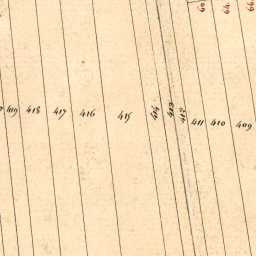 419 418 417 416 415 414 413 412 411 410 409